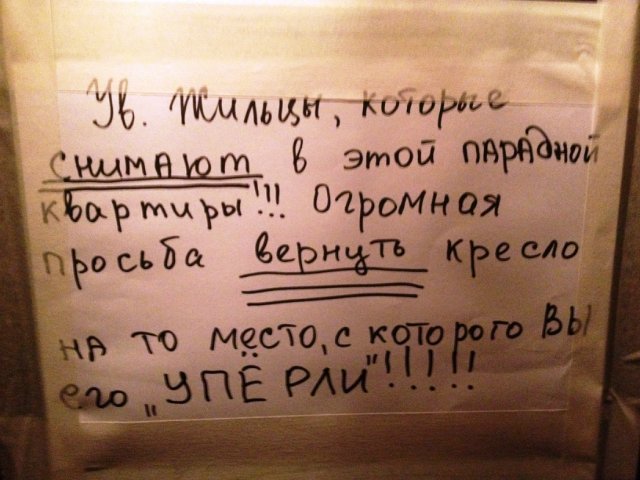 Ув. Жильцы, которые
снимают в этой парадной
квартиры!!! Огромная
просьба вернуть кресло
на то место, с которого вы
его „УПЁРЛИ"!!!!!